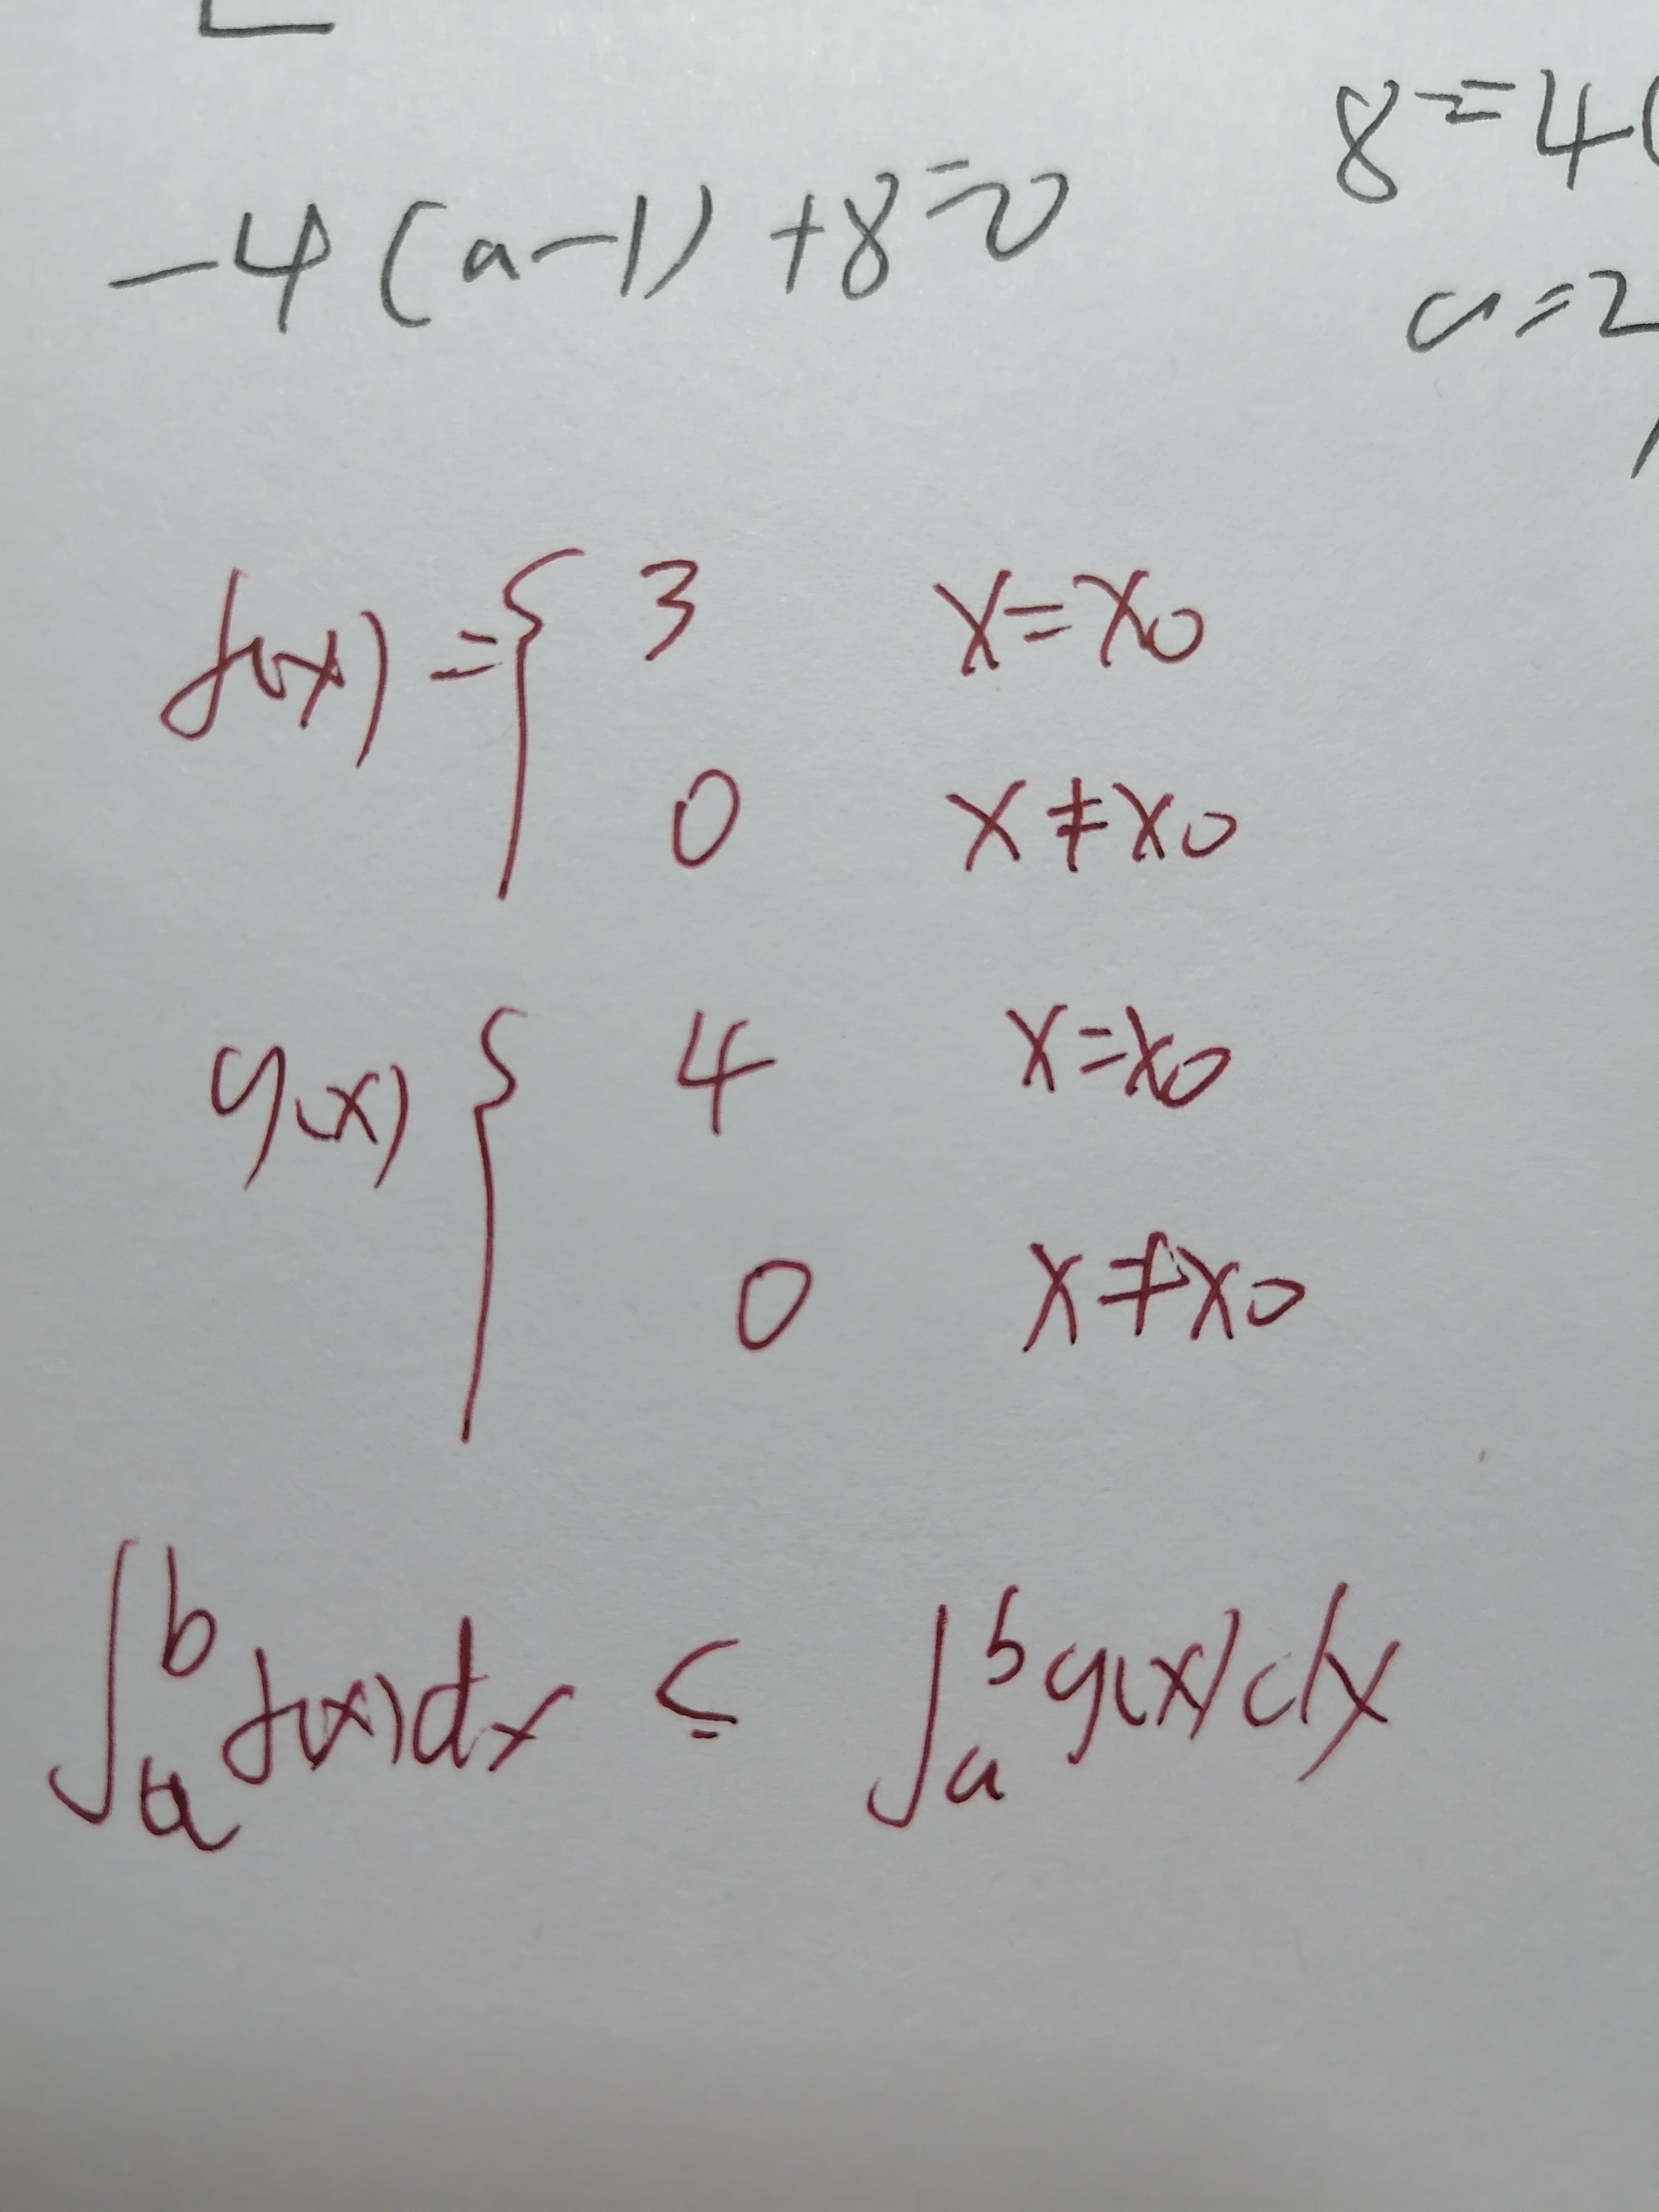 8=4(
-4(a-1)+8=0
a=2
f(x)={ 3 x=x₀
0 x≠x₀
g(x){ 4 x=x₀
0 x≠x₀
∫ₐᵇf(x)dx ≤ ∫ₐᵇg(x)dx